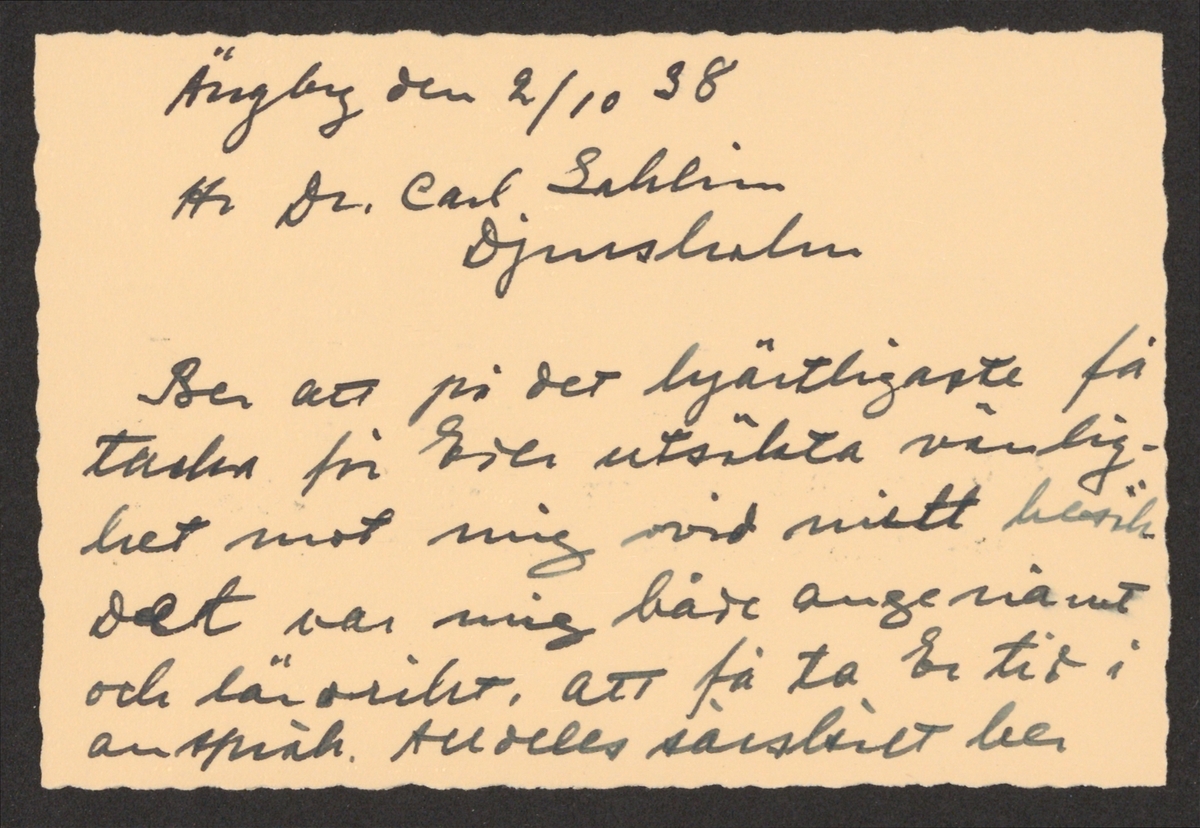 Ängby den 2/10 38
Hr Dr. Carl Sahlin
Djursholm
Ber att på det hjärtligaste få
tacka för Eder utsökta vänlig-
het mot mig vid mitt besök
Det var mig både angenämt
och lärorikt, att få ta Er tid i
anspråk. Alldeles särskilt ber